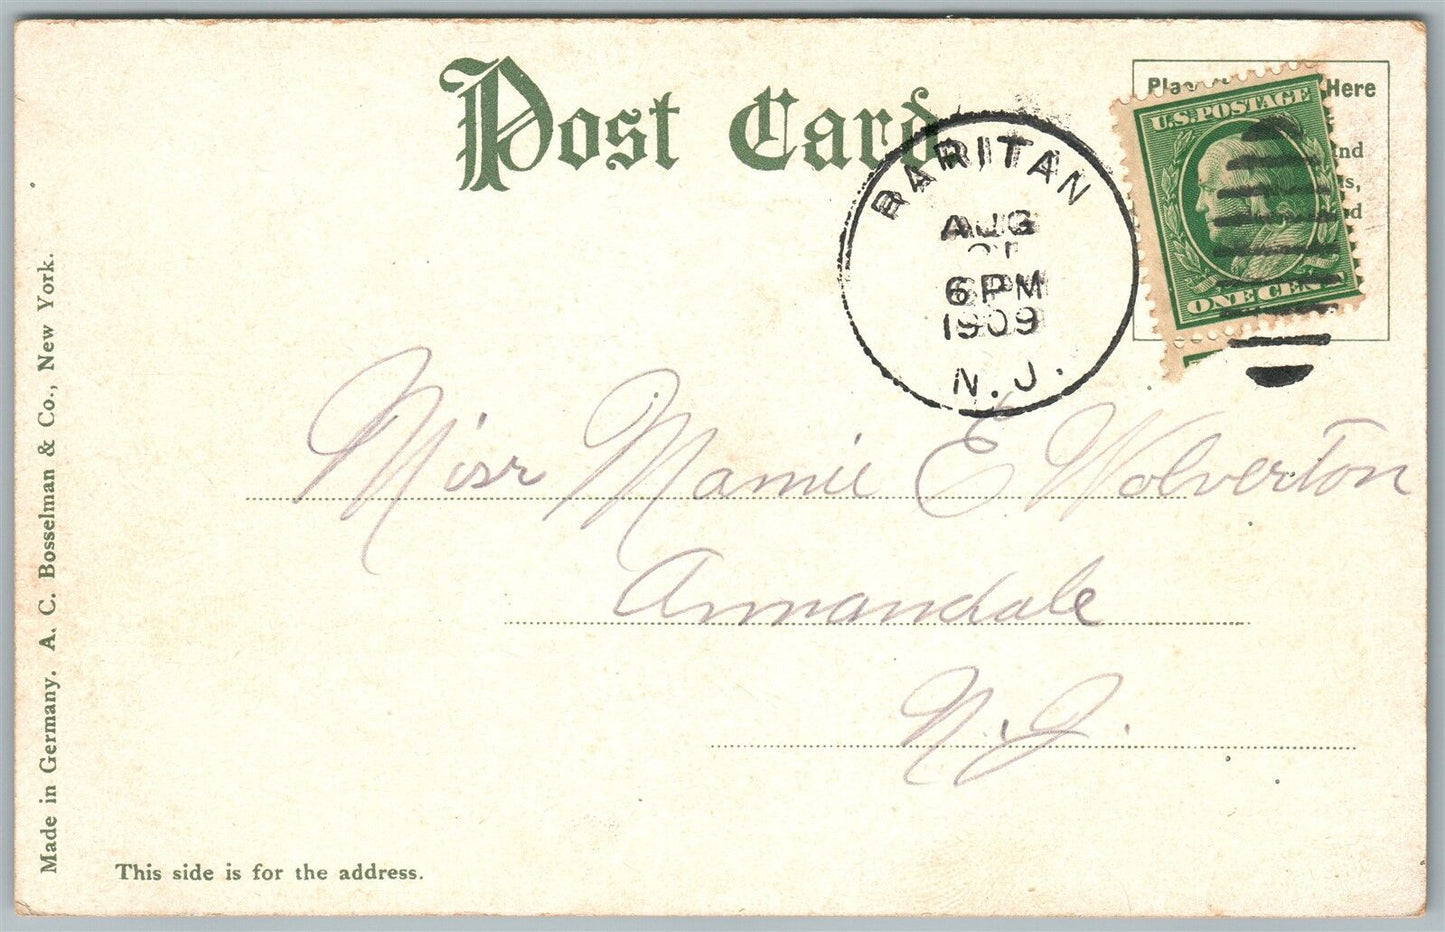 Post Card
Place Here
U.S. POSTAGE
ONE CENT
RARITAN
AUG
6 PM
1909
N.J.
Miss Mamie E Wolverton
Annandale
N.J.
Made in Germany. A. C. Bosselman & Co., New York.
This side is for the address.